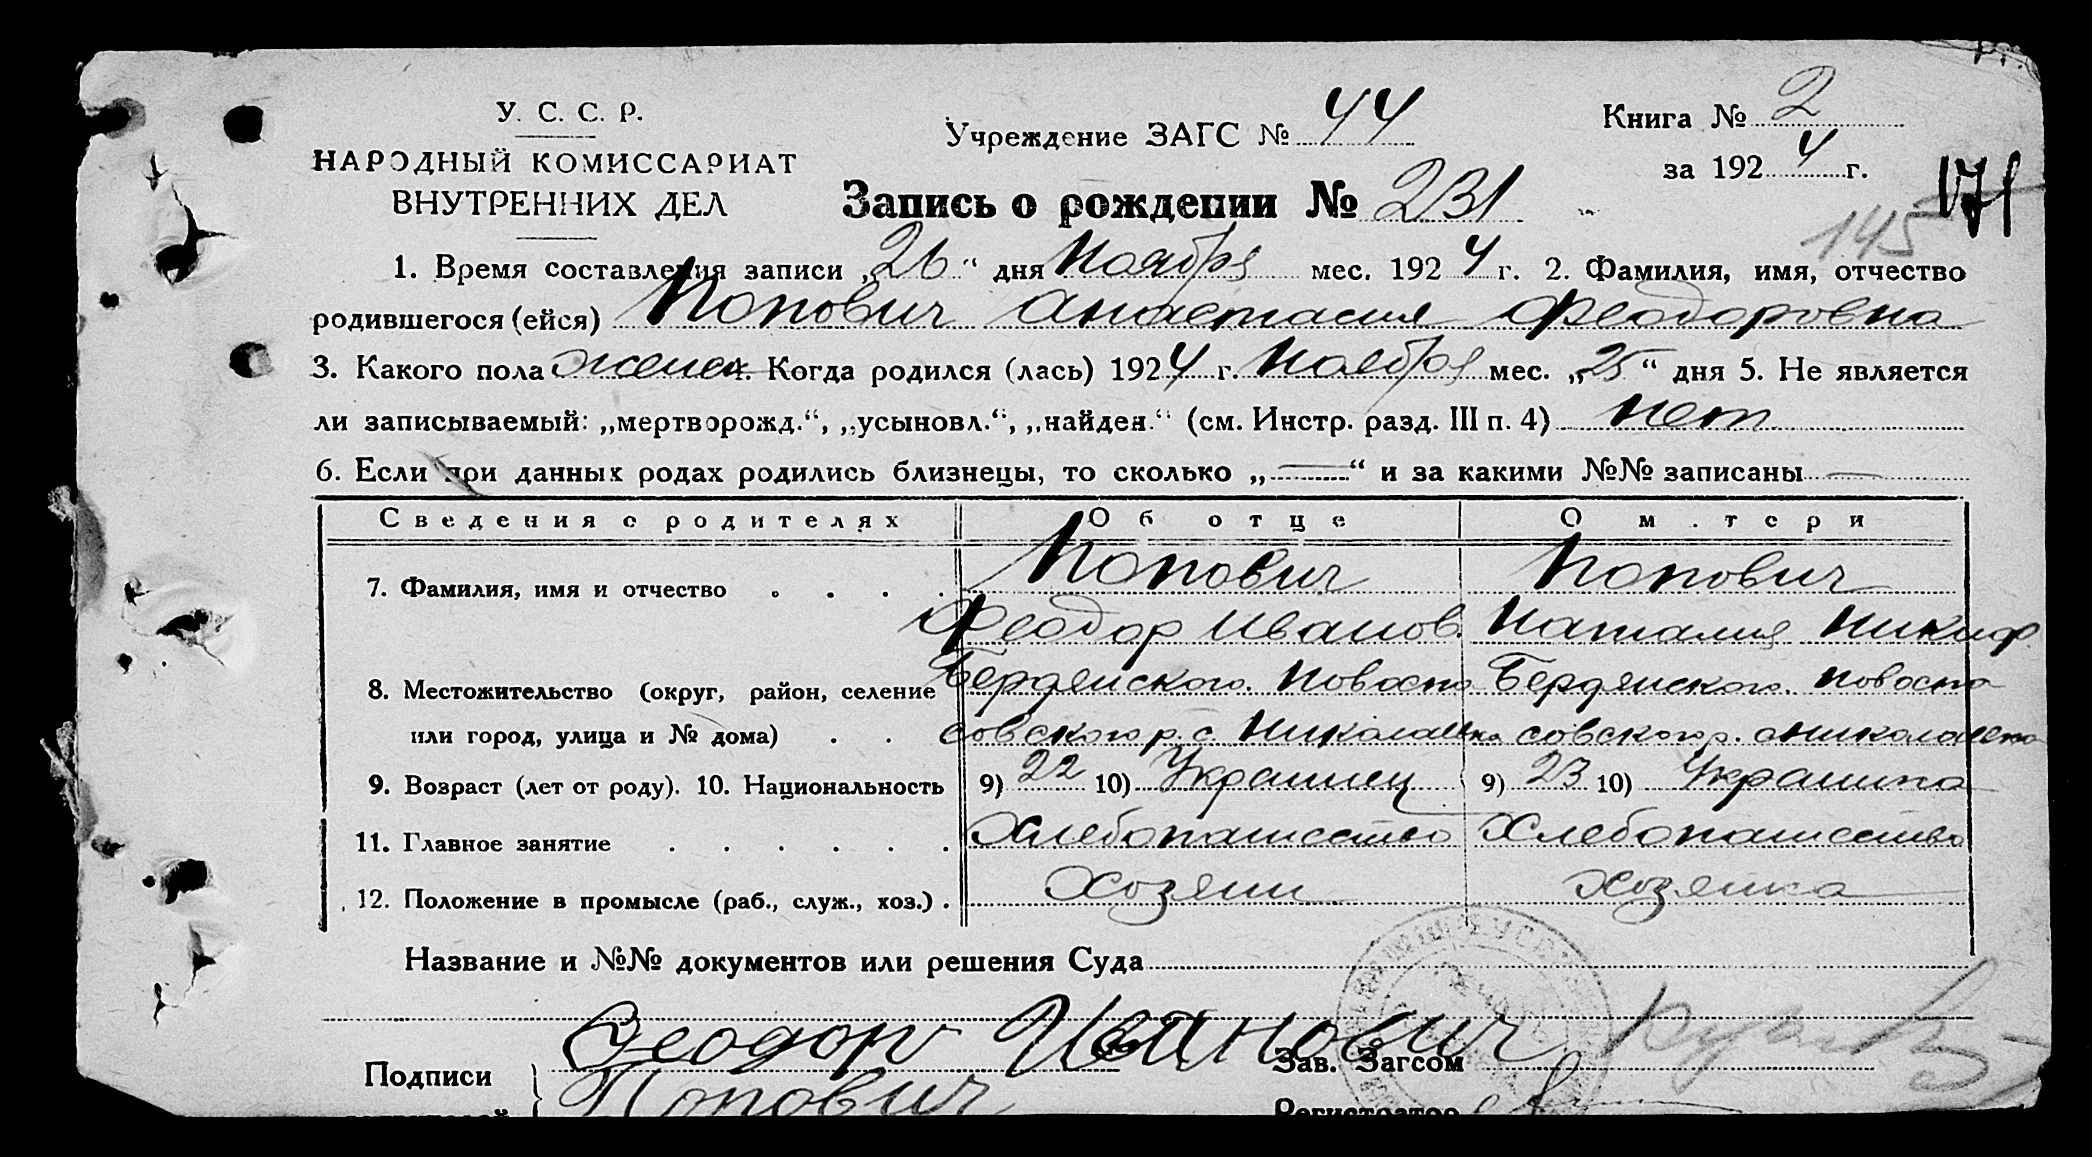 У. С. С. Р.
НАРОДНЫЙ КОМИССАРИАТ
ВНУТРЕННИХ ДЕЛ
Учреждение ЗАГС № 44
Книга № 2
за 1924 г.
171
145
Запись о рождении № 231
1. Время составления записи „26“ дня Ноября мес. 1924 г. 2. Фамилия, имя, отчество
родившегося (ейся) Попович Анастасия Феодоровна
3. Какого пола женск. Когда родился (лась) 1924 г. Ноября мес. „25“ дня 5. Не является
ли записываемый: „мертворожд.“, „усыновл.“, „найден.“ (см. Инстр. разд. III п. 4) нет
6. Если при данных родах родились близнецы, то сколько „—“ и за какими №№ записаны —
Сведения о родителях Об отце О матери
7. Фамилия, имя и отчество Попович Попович
Феодор Иванов. Наталия Никиф.
8. Местожительство (округ, район, селение Бердянского. Новоспа Бердянского. Новоспа
или город, улица и № дома) совского р. с. Николаевка совского р. с Николаевка
9. Возраст (лет от роду). 10. Национальность 9) 22 10) Украинец 9) 23 10) Украинка
11. Главное занятие Хлебопашество Хлебопашество
12. Положение в промысле (раб., служ., хоз.) Хозяин Хозяйка
Название и №№ документов или решения Суда
Феодор Иванович
Подписи Зав. Загсом
Попович Регистратор